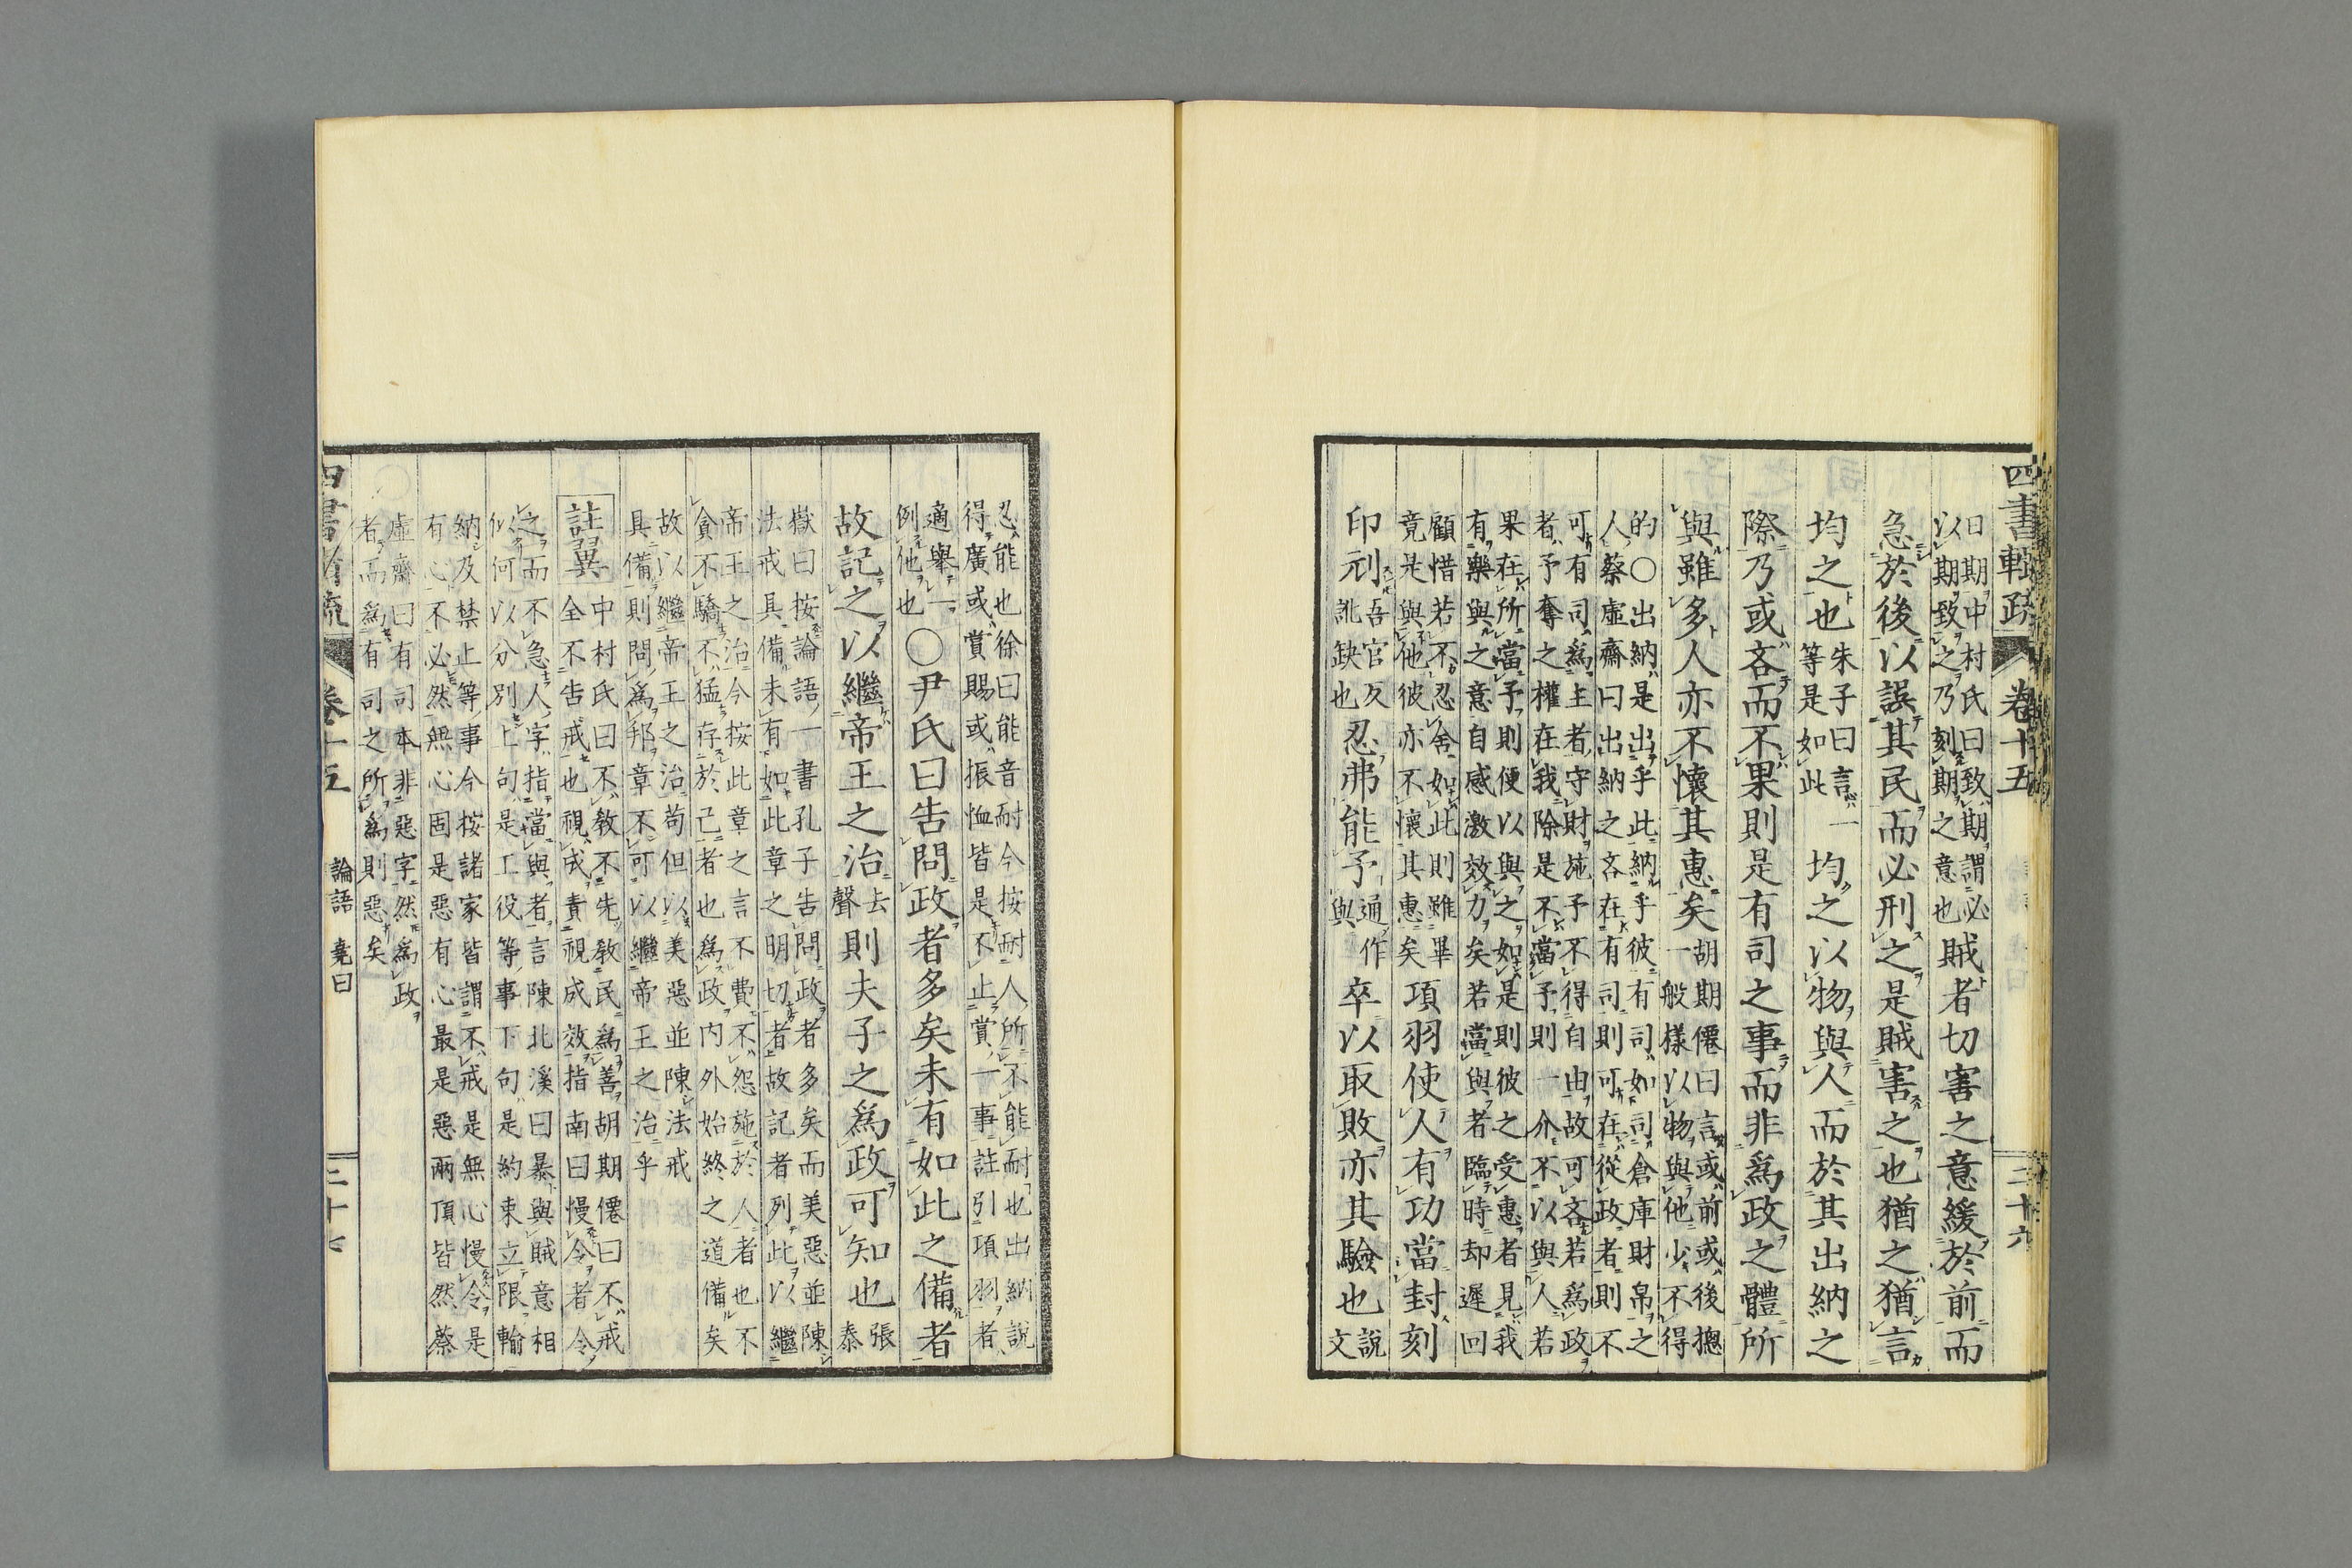 四書輯疏 卷十五 二十六
日期中村氏曰致期謂必
以期致之乃刻期之意也
賊者切害之意緩於前而
急於後以誤其民而必刑之是賊害之也猶之猶言
均之也
朱子曰言一
等是如此
均之以物與人而於其出納之
際乃或吝而不果則是有司之事而非爲政之體所
與雖多人亦不懷其惠矣
胡期僊曰言或前或後摠
一般樣以物與他少不得
的○出納是出乎此納乎彼有司如司倉庫財帛之
人蔡虛齋曰出納之吝在有司則可在從政者則不
可有司爲主者守財施予不得自由故可吝若爲政
者予奪之權在我除是不當予則一介不以與人若
果在所當予則便以與之如是則彼之受惠者見我
有樂與之意自感激效力矣若當與者臨時却遲回
顧惜若不忍舍如此則雖畢
竟是與他彼亦不懷其惠矣
項羽使人有功當封刻
印刓
吾官久
訛缺也
忍弗能予
通作
與
卒以取敗亦其驗也
說
文
忍能也徐曰能音耐今按耐人所不能耐也出納說
得廣或賞賜或振恤皆是不止賞一事註引項羽者
適舉一
例他也
○尹氏曰告問政者多矣未有如此之備者
故記之以繼帝王之治
去
聲
則夫子之爲政可知也
張
泰
嶽曰按論語一書孔子告問政者多矣而美惡並陳
法戒具備未有如此章之明切者故記者列此以繼
帝王之治今按此章之言不費不怨施於人者也不
貪不驕不猛存於己者也爲政內外始終之道備矣
故以繼帝王之治苟但以美惡並陳法戒
具備則問爲邦章不可以繼帝王之治乎
註翼
中村氏曰不敎不先敎民爲善胡期僊曰不戒
全不告戒也視成責視成效指南曰慢令者令
之而不急人字指當與者言陳北溪曰暴與賊意相
似何以分別上句是工役等事下句是約束立限輸
納及禁止等事今按諸家皆謂不戒是無心慢令是
有心不必然無心固是惡有心最是惡兩項皆然蔡
虛齋曰有司本非惡字然爲政
者而爲有司之所爲則惡矣
四書輯疏 卷十五 論語 堯曰 二十七